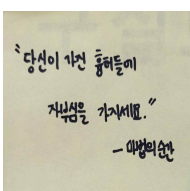 "당신이 가진 흉터들에
자부심을 가지세요."
- 마법의 순간